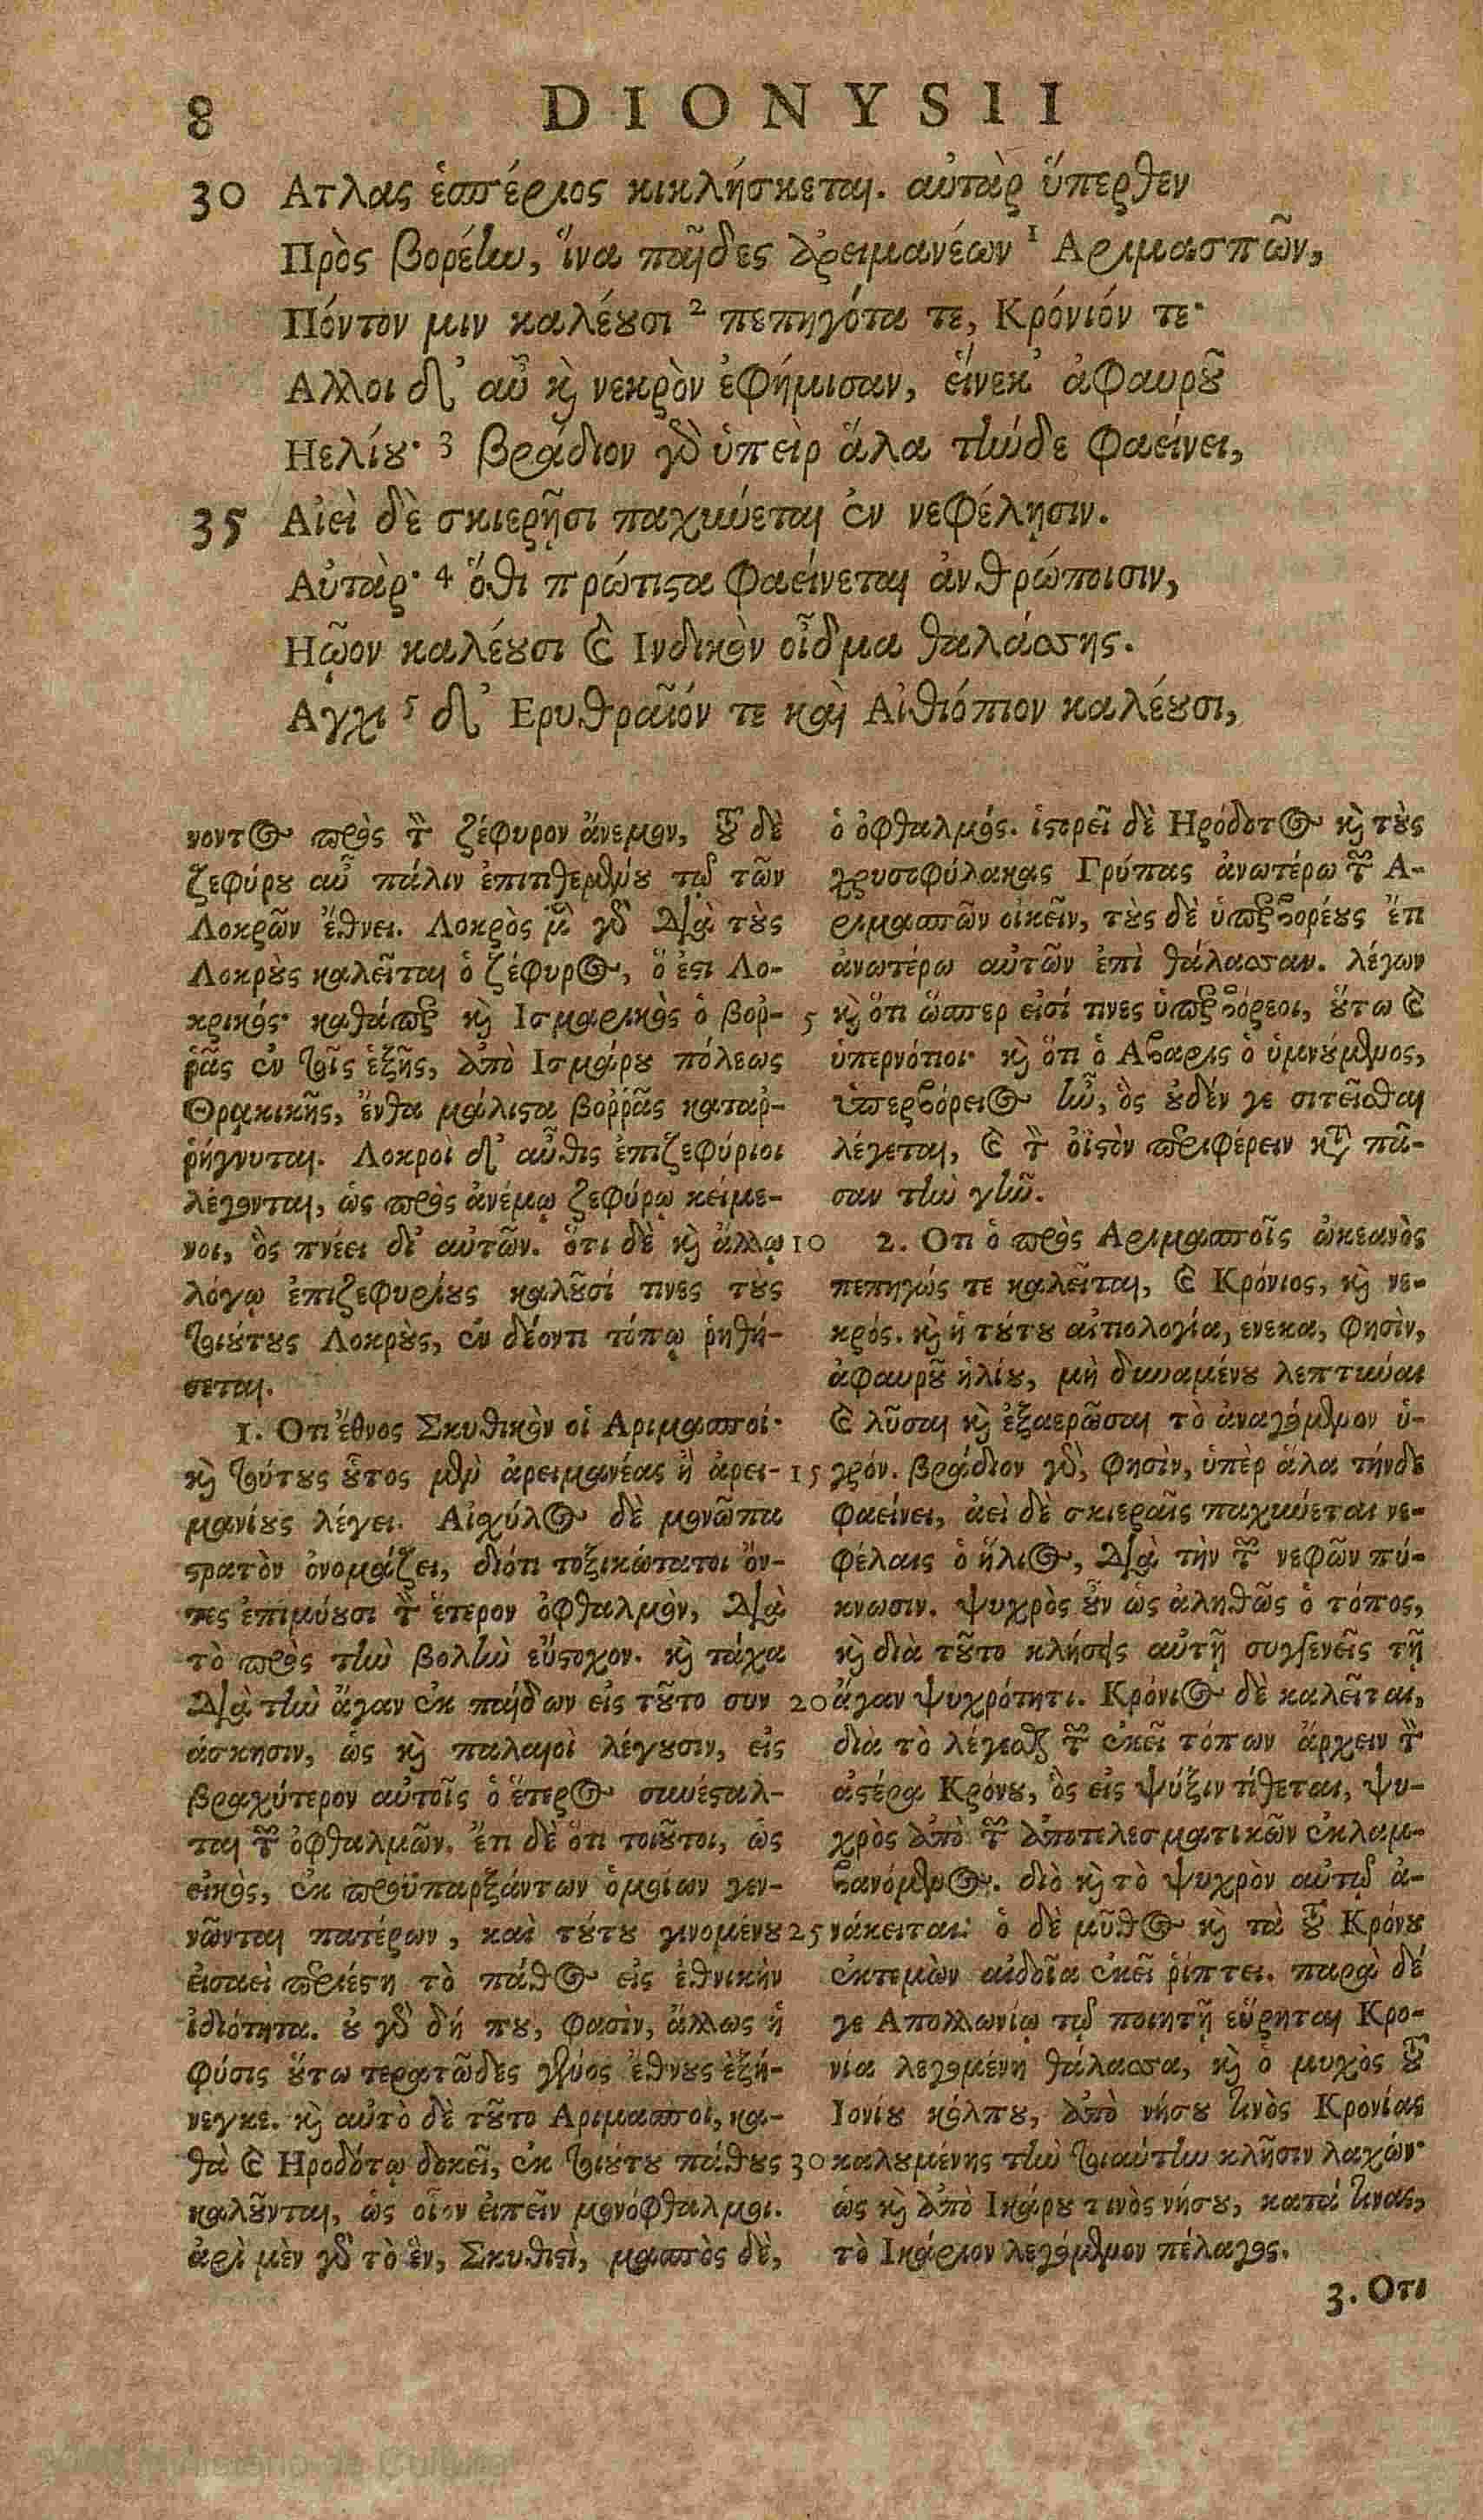 8 DIONYSII
30 Ατλας ἑσπέριος κικλήσκεται. αὐτὰρ ὕπερθεν
Πρὸς βορέην, ἵνα παῖδες ἀρειμανέων 1 Αριμασπῶν,
Πόντον μιν καλέουσι 2 πεπηγότα τε, Κρόνιόν τε·
Αλλοι δ' αὖ καὶ νεκρὸν ἐφήμισαν, εἵνεκ' ἀφαυροῦ
Ηελίου· 3 βράδιον γὸ ὑπεὶρ ἅλα τήνδε φαείνει,
35 Αἰεὶ δὲ σκιερῇσι παχύνεται ἐν νεφέλῃσιν.
Αὐτὰρ· 4 ὅθι πρώτιστα φαείνεται ἀνθρώποισιν,
Ηῷον καλέουσι καὶ Ινδικὸν οἶδμα θαλάσσης.
Αγχι 5 δ' Ερυθραῖόν τε καὶ Αἰθιόπιον καλέουσι,
νοντος πρὸς τὸν ζέφυρον ἄνεμον, τοῦ δὲ
ζεφύρου αὖ πάλιν ἐπιπιθεμένου τῷ τῶν
Λοκρῶν ἔθνει. Λοκρὸς μὲν γὸ διὰ τοὺς
Λοκροὺς καλεῖται ὁ ζέφυρος, ὅ ἐστι Λο-
κρικός· καθάπερ καὶ Ισμαρικὸς ὁ βοῤ-
ῥᾶς ἐν τοῖς ἑξῆς, ἀπὸ Ισμάρου πόλεως
Θρακικῆς, ἔνθα μάλιστα βοῤῥᾶς καταρ-
ῥήγνυται. Λοκροὶ δ' αὖθις ἐπιζεφύριοι
λέγονται, ὡς πρὸς ἀνέμῳ ζεφύρῳ κείμε-
νοι, ὃς πνέει δι' αὐτῶν. ὅτι δὲ καὶ ἄλλῳ
λόγῳ ἐπιζεφυρίους καλοῦσί τινες τοὺς
τοιούτους Λοκροὺς, ἐν δέοντι τόπῳ ῥηθή-
σεται.
1. Οτι ἔθνος Σκυθικὸν οἱ Αριμασποί·
καὶ τούτους οὗτος μὲν ἀρειμανέας ἢ ἀρει-
μανίους λέγει. Αἰσχύλος δὲ μονῶπα
στρατὸν ὀνομάζει, διότι τοξικώτατοι ὄν-
τες ἐπιμύουσι τὸν ἕτερον ὀφθαλμὸν, διὰ
τὸ πρὸς τὴν βολὴν εὔστοχον. καὶ τάχα
διὰ τὴν ἄγαν ἐκ παίδων εἰς τοῦτο συν
άσκησιν, ὡς καὶ παλαιοὶ λέγουσιν, εἰς
βραχύτερον αὐτοῖς ὁ ἕτερος συνέσταλ-
ται τῶν ὀφθαλμῶν. ἔτι δὲ ὅτι τοιοῦτοι, ὡς
εἰκὸς, ἐκ προϋπαρξάντων ὁμοίων γεν-
νῶνται πατέρων, καὶ τούτου γινομένου
εἰσαεὶ περιέστη τὸ πάθος εἰς ἐθνικὴν
ἰδιότητα. οὐ γὸ δή που, φασὶν, ἄλλως ἡ
φύσις οὕτω τερατῶδες γένος ἔθνους ἐξή-
νεγκε. καὶ αὐτὸ δὲ τοῦτο Αριμασποὶ, κα-
θὰ καὶ Ηροδότῳ δοκεῖ, ἐκ τοιούτου πάθους
καλοῦνται, ὡς οἷον εἰπεῖν μονόφθαλμοι.
ἀρὶ μὲν γὸ τὸ ἓν, Σκυθιστὶ, μασπὸς δὲ,
ὁ ὀφθαλμός. ἱστορεῖ δὲ Ηρόδοτος καὶ τοὺς
χρυσοφύλακας Γρύπας ἀνωτέρω τῶν Α-
ριμασπῶν οἰκεῖν, τοὺς δὲ ὑπερβορέους ἔτι
ἀνωτέρω αὐτῶν ἐπὶ θάλασσαν. λέγων
5 καὶ ὅτι ὥσπερ εἰσί τινες ὑπερβόρεοι, οὕτω καὶ
ὑπερνότιοι· καὶ ὅτι ὁ Αβαρις ὁ ὑμνούμενος,
ὑπερβόρειος ἦν, ὃς οὐδέν γε σιτεῖσθαι
λέγεται, καὶ τὸν οἰστὸν περιφέρειν κατὰ πᾶ-
σαν τὴν γῆν.
10 2. Οτι ὁ πρὸς Αριμασποῖς ὠκεανὸς
πεπηγώς τε καλεῖται, καὶ Κρόνιος, καὶ νε-
κρός. καὶ ἡ τούτου αἰτιολογία, ἕνεκα, φησὶν,
ἀφαυροῦ ἡλίου, μὴ δυναμένου λεπτῦναι
καὶ λῦσαι καὶ ἐξαερῶσαι τὸ ἀναγόμενον ὑ-
15 γρόν. βράδιον γὸ, φησὶν, ὑπὲρ ἅλα τήνδε
φαείνει, ἀεὶ δὲ σκιεραῖς παχύνεται νε-
φέλαις ὁ ἥλιος, διὰ τὴν τῶν νεφῶν πύ-
κνωσιν. ψυχρὸς οὖν ὡς ἀληθῶς ὁ τόπος,
καὶ διὰ τοῦτο κλήσεις αὐτῇ συγγενεῖς τῇ
20 ἄγαν ψυχρότητι. Κρόνιος δὲ καλεῖται,
διὰ τὸ λέγεσθαι τῶν ἐκεῖ τόπων ἄρχειν τὸν
ἀστέρα Κρόνου, ὃς εἰς ψύξιν τίθεται, ψυ-
χρὸς ἀπὸ τῶν ἀποτελεσματικῶν ἐκλαμ-
βανόμενος. διὸ καὶ τὸ ψυχρὸν αὐτῷ ἀ-
25 νάκειται: ὁ δὲ μῦθος καὶ τὰ τοῦ Κρόνου
ἐκτεμὼν αἰδοῖα ἐκεῖ ῥίπτει. παρὰ δέ
γε Απολλωνίῳ τῷ ποιητῇ εὕρηται Κρο-
νία λεγομένη θάλασσα, καὶ ὁ μυχὸς τοῦ
Ιονίου κόλπου, ἀπὸ νήσου τινὸς Κρονίας
30 καλουμένης τὴν τοιαύτην κλῆσιν λαχών·
ὡς καὶ ἀπὸ Ικάρου τινὸς νήσου, κατά τινας,
τὸ Ικάριον λεγόμενον πέλαγος.
3. Οτι